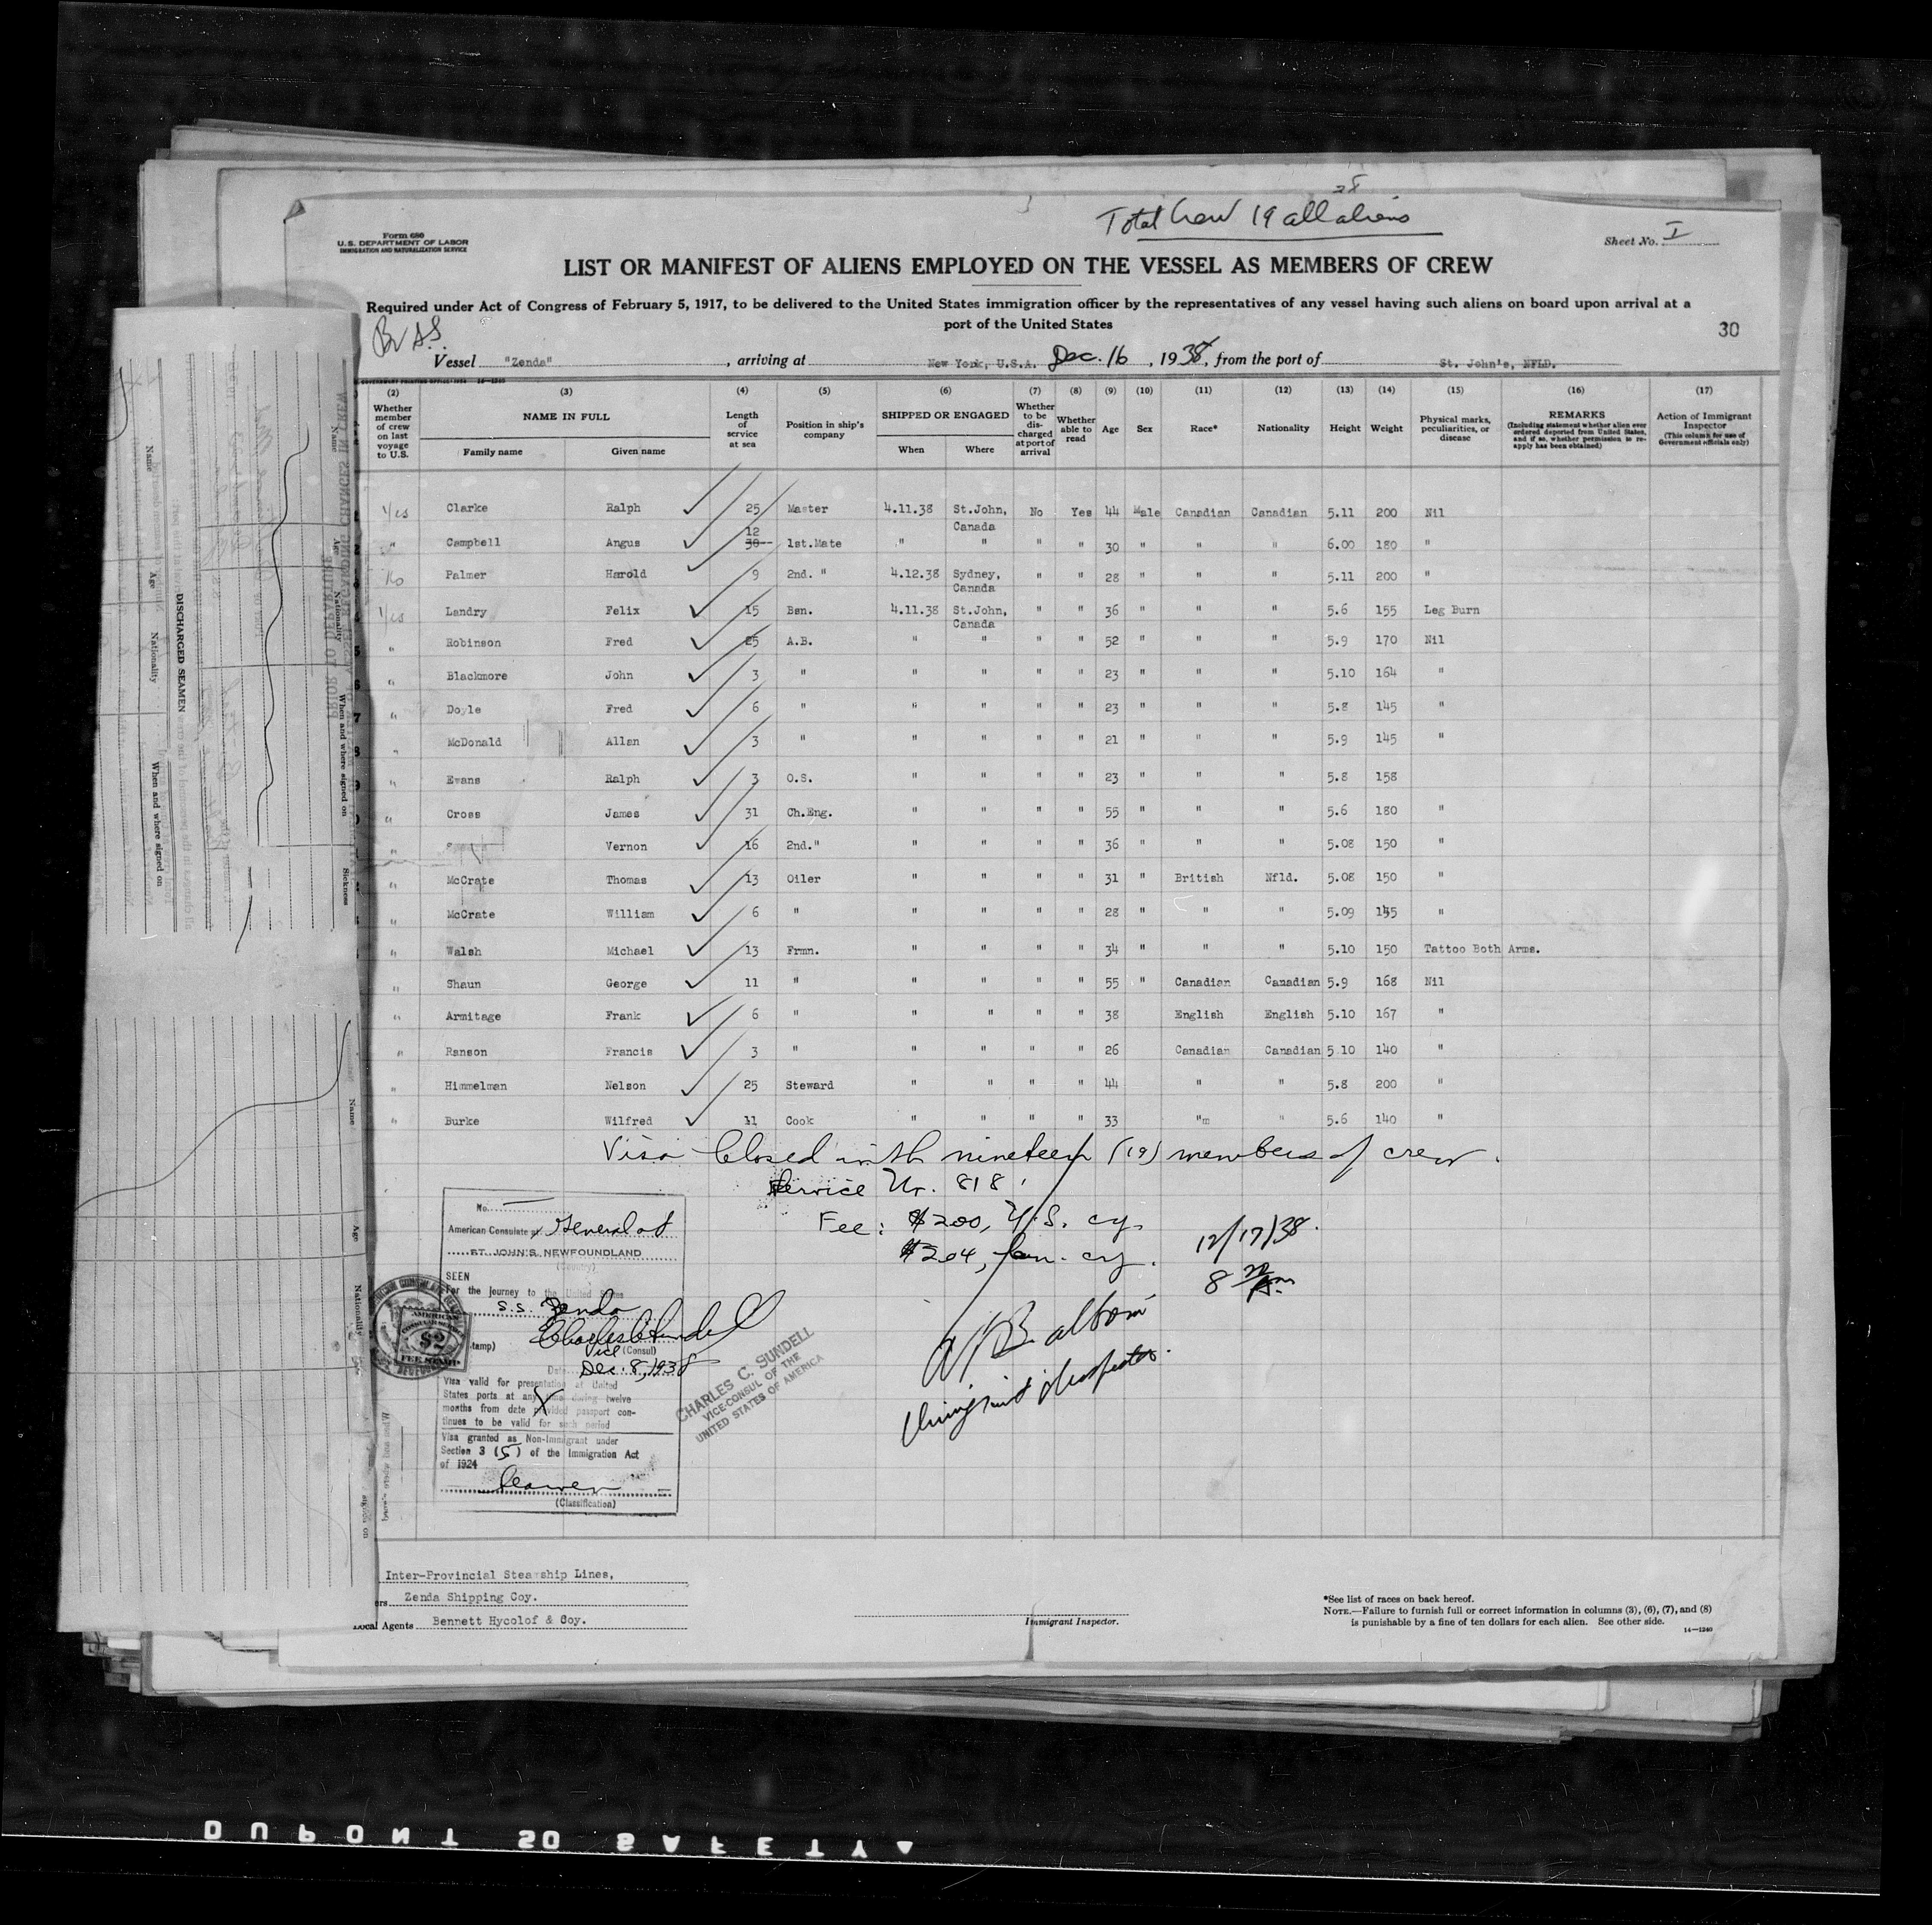 28
Total Crew 19 all aliens
Form 680
U.S. DEPARTMENT OF LABOR
IMMIGRATION AND NATURALIZATION SERVICE
Sheet No. I
LIST OR MANIFEST OF ALIENS EMPLOYED ON THE VESSEL AS MEMBERS OF CREW
Required under Act of Congress of February 5, 1917, to be delivered to the United States immigration officer by the representatives of any vessel having such aliens on board upon arrival at a
port of the United States
30
Vessel "Zenda", arriving at New York, U.S.A. Dec. 16, 1938, from the port of St. John's, NFLD.
(2) (3) (4) (5) (6) (7) (8) (9) (10) (11) (12) (13) (14) (15) (16) (17)
Whether member of crew on last voyage to U.S. NAME IN FULL Family name Given name Length of service at sea Position in ship's company SHIPPED OR ENGAGED When Where Whether to be discharged at port of arrival Whether able to read Age Sex Race* Nationality Height Weight Physical marks, peculiarities, or disease REMARKS (Including statement whether alien ever ordered deported from United States, and if so, whether permission to reapply has been obtained) Action of Immigrant Inspector (This column for use of Government officials only)
Yes Clarke Ralph 25 Master 4.11.38 St.John, Canada No Yes 44 Male Canadian Canadian 5.11 200 Nil
" Campbell Angus 12 30 1st.Mate " " " " 30 " " " 6.00 180 "
No Palmer Harold 9 2nd. " 4.12.38 Sydney, Canada " " 28 " " " 5.11 200 "
Yes Landry Felix 15 Bsn. 4.11.38 St.John, Canada " " 36 " " " 5.6 155 Leg Burn
" Robinson Fred 25 A.B. " " " " 52 " " " 5.9 170 Nil
" Blackmore John 3 " " " " " 23 " " " 5.10 164 "
" Doyle Fred 6 " " " " " 23 " " " 5.8 145 "
" McDonald Allan 3 " " " " " 21 " " " 5.9 145 "
" Evans Ralph 3 O.S. " " " " 23 " " " 5.8 158
" Cross James 31 Ch.Eng. " " " " 55 " " " 5.6 180 "
" Vernon 16 2nd." " " " " 36 " " " 5.08 150 "
" McCrate Thomas 13 Oiler " " " " 31 " British Nfld. 5.08 150 "
" McCrate William 6 " " " " " 28 " " " 5.09 "
" Walsh Michael 13 Frmn. " " " " 34 " " " 5.10 150 Tattoo Both Arms.
" Shaun George 11 " " " " " 55 " Canadian Canadian 5.9 168 Nil
" Armitage Frank 6 " " " " " 38 English English 5.10 167 "
" Ranson Francis 3 " " " " " 26 Canadian Canadian 5.10 140 "
" Himmelman Nelson 25 Steward " " " " 44 " " 5.8 200 "
" Burke Wilfred 11 Cook " " " " 33 "m " 5.6 140 "
Visa closed with nineteen (19) members of crew.
Service Nr. 818.
Fee: $2.00, U.S. cy.
$2.04, Can. cy.
12/17/38.
8
No.
American Consulate General at
ST. JOHN'S, NEWFOUNDLAND
(Country)
SEEN
For the journey to the United States
S.S. Zenda
Charles C Sundell
Vice (Consul)
Date Dec. 8, 1938
Visa valid for presentation at United
States ports at any time during twelve
months from date provided passport con-
tinues to be valid for such period
Visa granted as Non-Immigrant under
Section 3 (5) of the Immigration Act
of 1924
Seamen
(Classification)
AMERICAN
CONSULAR SERVICE
$2
FEE STAMP
CHARLES C. SUNDELL
VICE-CONSUL OF THE
UNITED STATES OF AMERICA
Immigrant Inspector.
Inter-Provincial Steamship Lines,
Zenda Shipping Coy.
Local Agents Bennett Hycolof & Coy.
Immigrant Inspector.
*See list of races on back hereof.
NOTE.—Failure to furnish full or correct information in columns (3), (6), (7), and (8)
is punishable by a fine of ten dollars for each alien. See other side.
14—1240
DISCHARGED SEAMEN
Name Age Nationality When and where signed on
Name Age Nationality When and where signed on Sickness
DUPONT SO SAFETY